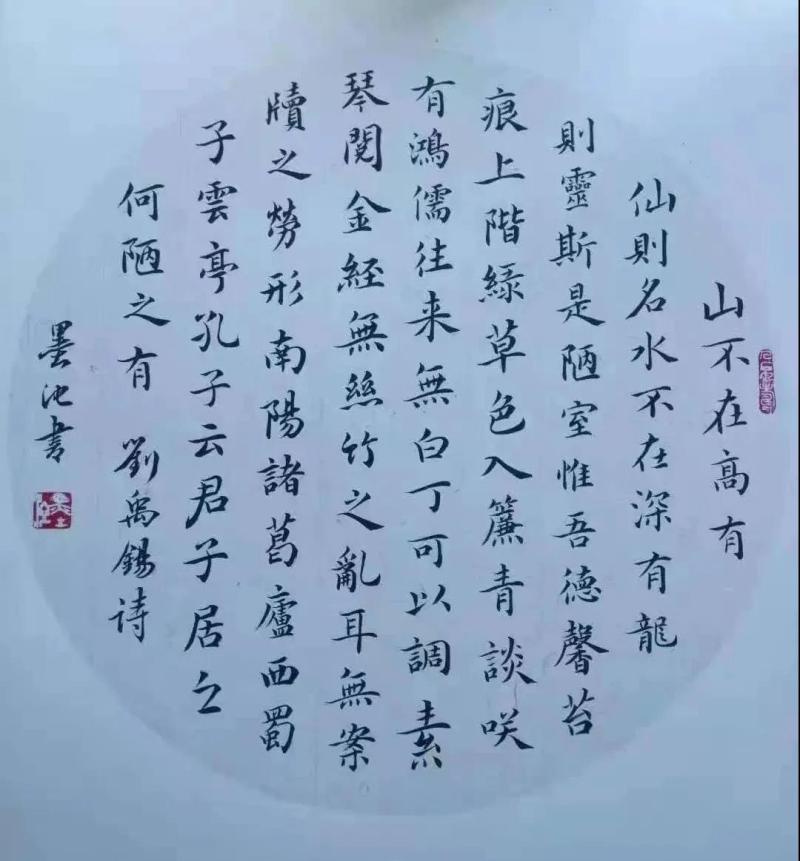 山不在高有
仙則名水不在深有龍
則靈斯是陋室惟吾德馨苔
痕上階緑草色入簾青談咲
有鴻儒往来無白丁可以調素
琴閱金経無絲竹之亂耳無案
牘之勞形南陽諸葛廬西蜀
子雲亭孔子云君子居之
何陋之有 劉禹錫诗
墨池書